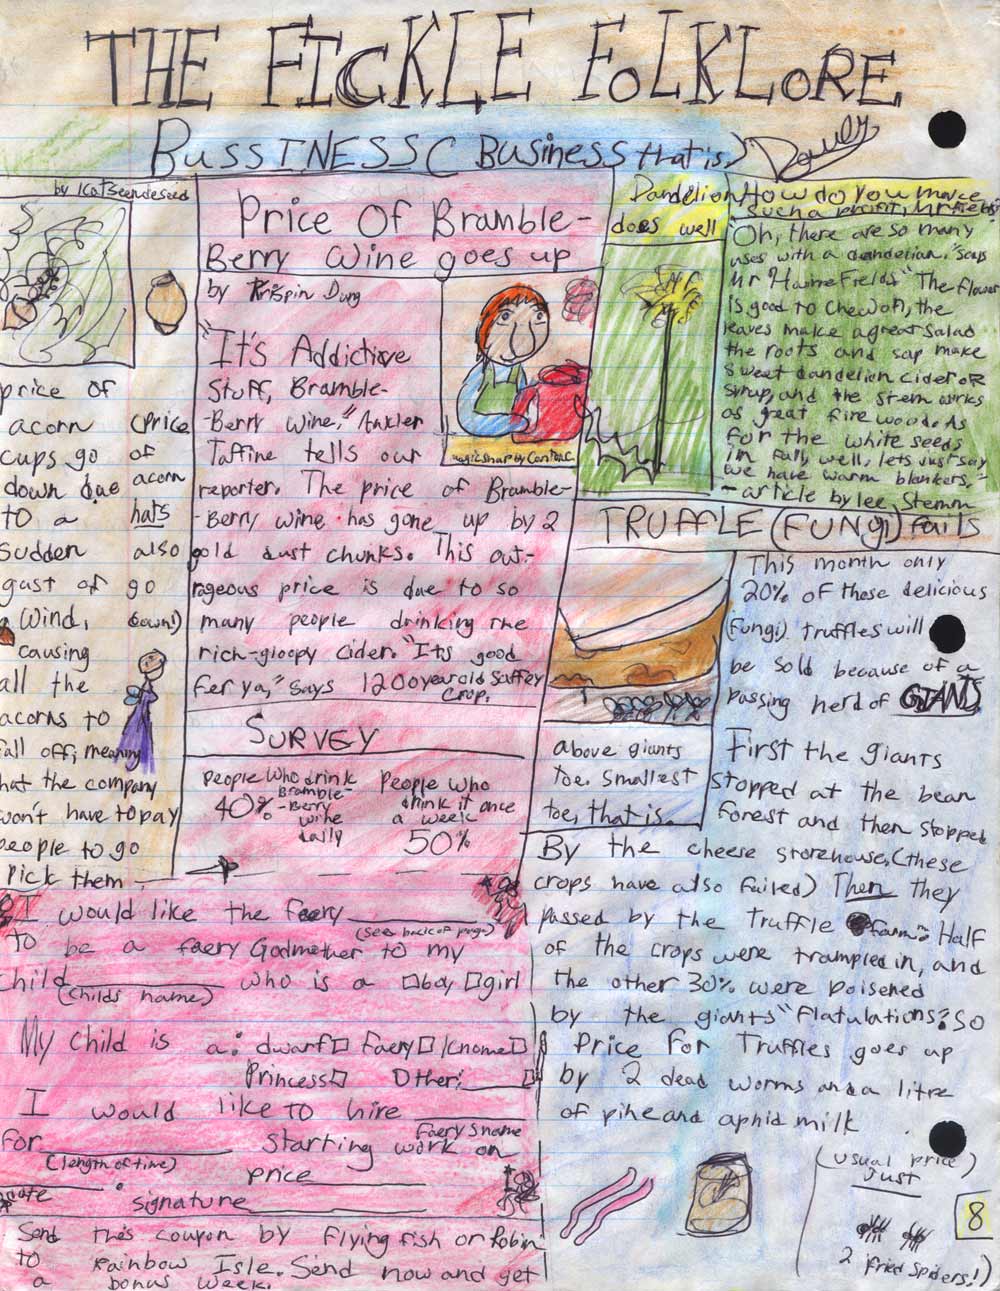 THE FICKLE FOLKLORE
BUSSINESS ( Business that is.)
by Kat Seendeseed
price of
acorn
cups go
down due
to a
sudden
gust of
wind,
causing
all the
acorns to
fall off, meaning
that the company
won't have to pay
people to go
pick them
(price
of
acorn
hats
also
go
down!)
Price Of Bramble-
Berry Wine goes up
by Krispin Dung
"It's Addictive
Stuff, Bramble-
-Berry Wine," Ankler
Taffine tells our
reporter. The price of Bramble-
-Berry wine has gone up by 2
gold dust chunks. This out-
rageous price is due to so
many people drinking the
rich-gloopy cider. "Its good
fer ya," says 1200 year old Saffey
Crop.
SURVEY
People who drink
Bramble-
-Berry
wine
daily
40%
People who
drink it once
a week
50%
Dandelion
does well
How do you make
such a profit, Mr Fields?
"Oh, there are so many
uses with a dandelion," says
Mr Homefields "The flower
is good to chew on, the
leaves make a great salad
the roots and sap make
sweet dandelion cider or
syrup, and the stem works
as great fire wood. As
for the white seeds
in fall, well, lets just say
we have warm blankets."
- article by lee Stemm
TRUFFLE (FUNGI) fails
This month only
20% of these delicious
(fungi) truffles will
be sold because of a
passing herd of GIANTS
above: giants
toe. Smallest
toe, that is.
First the giants
stopped at the bean
forest and then stopped
By the cheese storehouse, (these
crops have also failed) Then they
passed by the truffle farm. Half
of the crops were trampled in, and
the other 30% were poisened
by the giants "Flatulations". So
Price for Truffles goes up
by 2 dead worms and a litre
of pine and aphid milk
(usual price)
Just
2 fried spiders!)
8
I would like the faery
(see back of page)
to be a faery Godmother to my
child who is a boy girl
(childs name)
My child is a: dwarf Faery Gnome
Princess Other:
I would like to hire
Faerys name
for starting work on
(length of time)
price
date
signature
Send this coupon by flying fish or Robin
to Rainbow Isle. Send now and get
a bonus week.